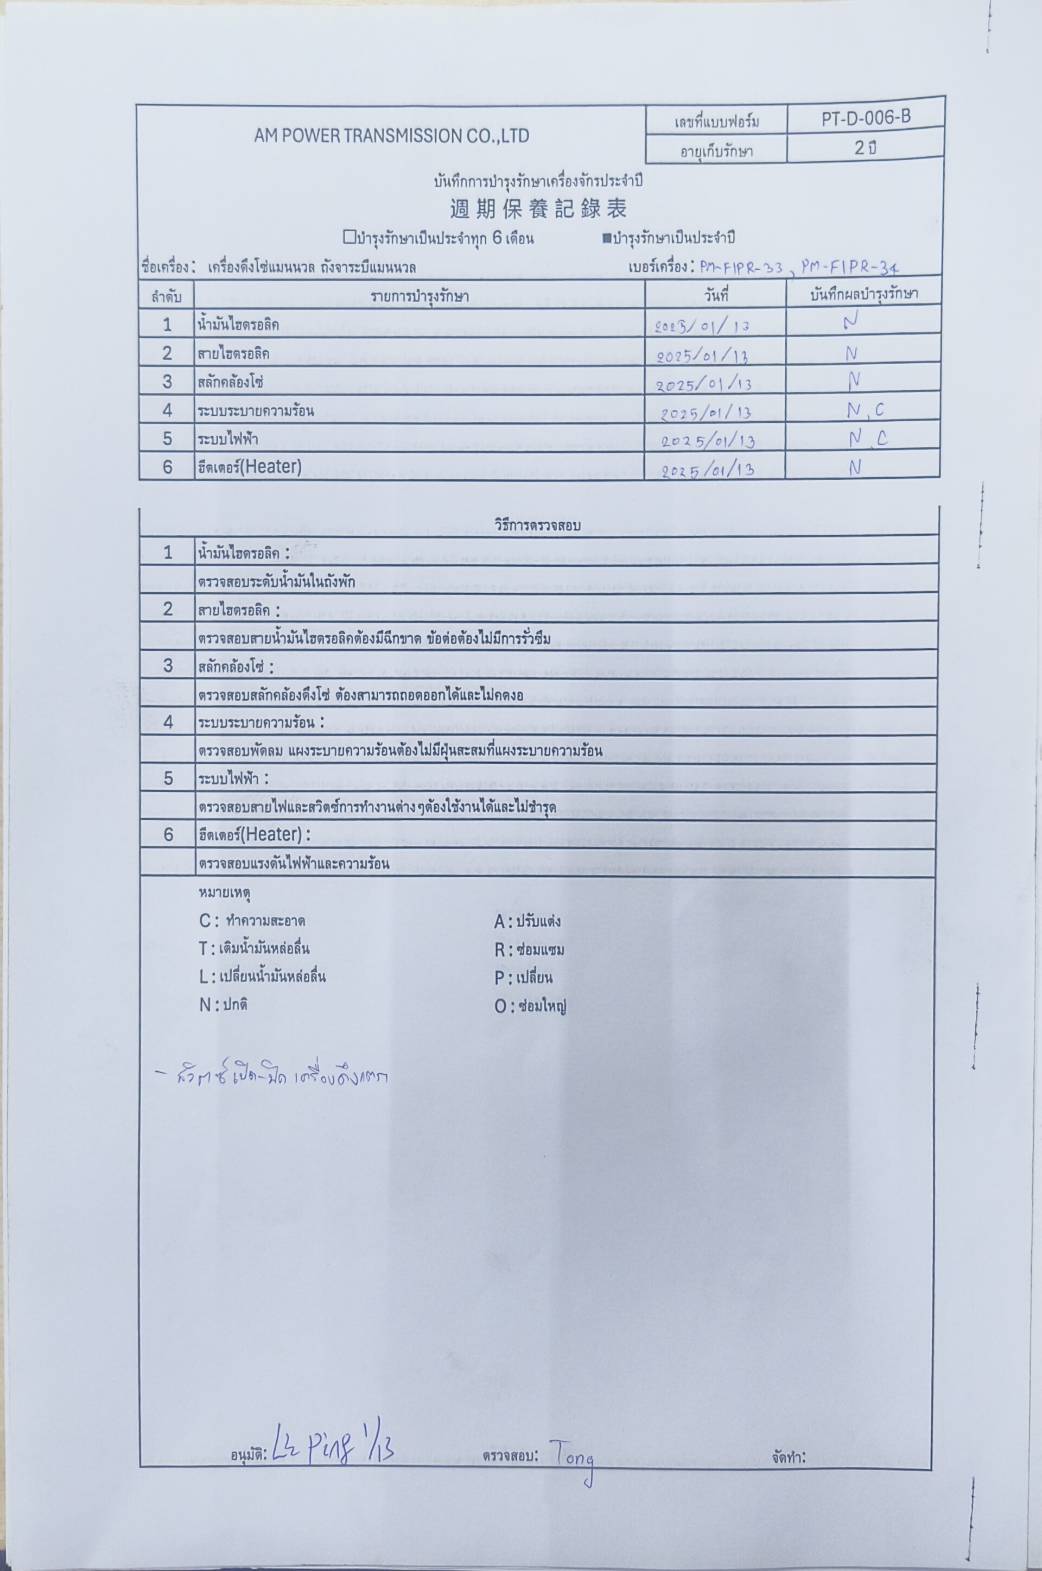 AM POWER TRANSMISSION CO.,LTD
เลขที่แบบฟอร์ม PT-D-006-B
อายุเก็บรักษา 2 ปี
บันทึกการบำรุงรักษาเครื่องจักรประจำปี
週期保養記錄表
☐บำรุงรักษาเป็นประจำทุก 6 เดือน ■บำรุงรักษาเป็นประจำปี
ชื่อเครื่อง: เครื่องดึงโซ่แมนนวล ถังจาระบีแมนนวล เบอร์เครื่อง: PM-FIPR-33, PM-FIPR-34
ลำดับ รายการบำรุงรักษา วันที่ บันทึกผลบำรุงรักษา
1 น้ำมันไฮดรอลิค 2025/01/13 N
2 สายไฮดรอลิค 2025/01/13 N
3 สลักคล้องโซ่ 2025/01/13 N
4 ระบบระบายความร้อน 2025/01/13 N,C
5 ระบบไฟฟ้า 2025/01/13 N,C
6 ฮีตเตอร์(Heater) 2025/01/13 N
วิธีการตรวจสอบ
1 น้ำมันไฮดรอลิค :
ตรวจสอบระดับน้ำมันในถังพัก
2 สายไฮดรอลิค :
ตรวจสอบสายน้ำมันไฮดรอลิคต้องมีฉีกขาด ข้อต่อต้องไม่มีการรั่วซึม
3 สลักคล้องโซ่ :
ตรวจสอบสลักคล้องดึงโซ่ ต้องสามารถถอดออกได้และไม่คดงอ
4 ระบบระบายความร้อน :
ตรวจสอบพัดลม แผงระบายความร้อนต้องไม่มีฝุ่นสะสมที่แผงระบายความร้อน
5 ระบบไฟฟ้า :
ตรวจสอบสายไฟและสวิตซ์การทำงานต่างๆต้องใช้งานได้และไม่ชำรุด
6 ฮีตเตอร์(Heater) :
ตรวจสอบแรงดันไฟฟ้าและความร้อน
หมายเหตุ
C : ทำความสะอาด A : ปรับแต่ง
T : เติมน้ำมันหล่อลื่น R : ซ่อมแซม
L : เปลี่ยนน้ำมันหล่อลื่น P : เปลี่ยน
N : ปกติ O : ซ่อมใหญ่
- สวิตซ์ เปิด-ปิด เครื่องดึงแตก
อนุมัติ: Ping 1/13 ตรวจสอบ: Tong จัดทำ: